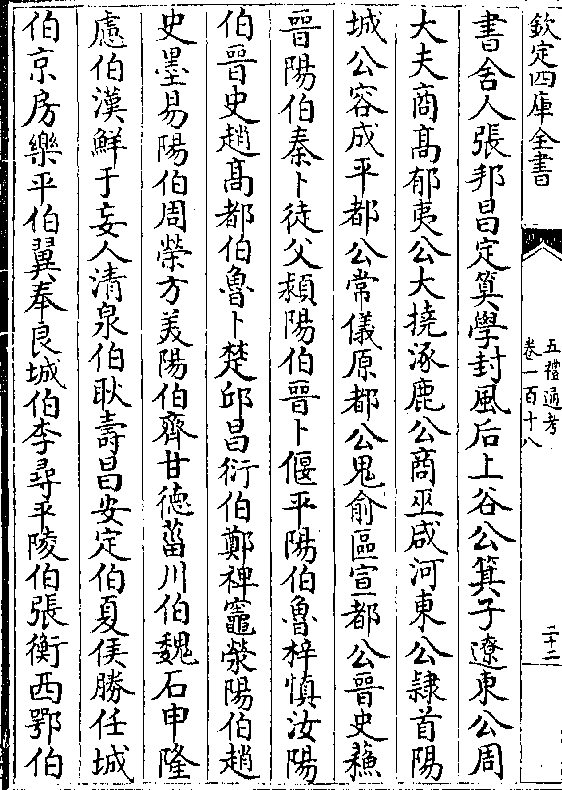 欽定四庫全書
五禮通考
卷一百十八
二十二
書舍人張邦昌定算學封風后上谷公箕子遼東公周
大夫商髙郁夷公大撓涿鹿公商巫咸河東公隷首陽
城公容成平都公常儀原都公鬼俞區宣都公晉史蘇
晉陽伯秦卜徒父潁陽伯晉卜偃平陽伯魯梓慎汝陽
伯晉史趙髙都伯魯卜楚邱昌衍伯鄭裨竈滎陽伯趙
史墨易陽伯周榮方美陽伯齊甘德菑川伯魏石申隆
慮伯漢鮮于妄人清泉伯耿壽昌安定伯夏侯勝任城
伯京房樂平伯翼奉良城伯李尋平陵伯張衡西鄂伯